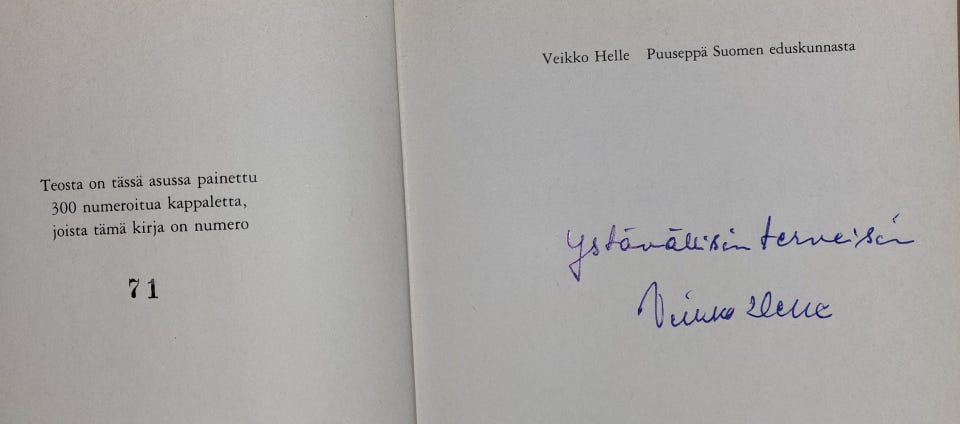 Teosta on tässä asussa painettu
300 numeroitua kappaletta,
joista tämä kirja on numero
71
Veikko Helle Puuseppä Suomen eduskunnasta
Ystävällisin terveisin
Veikko Helle